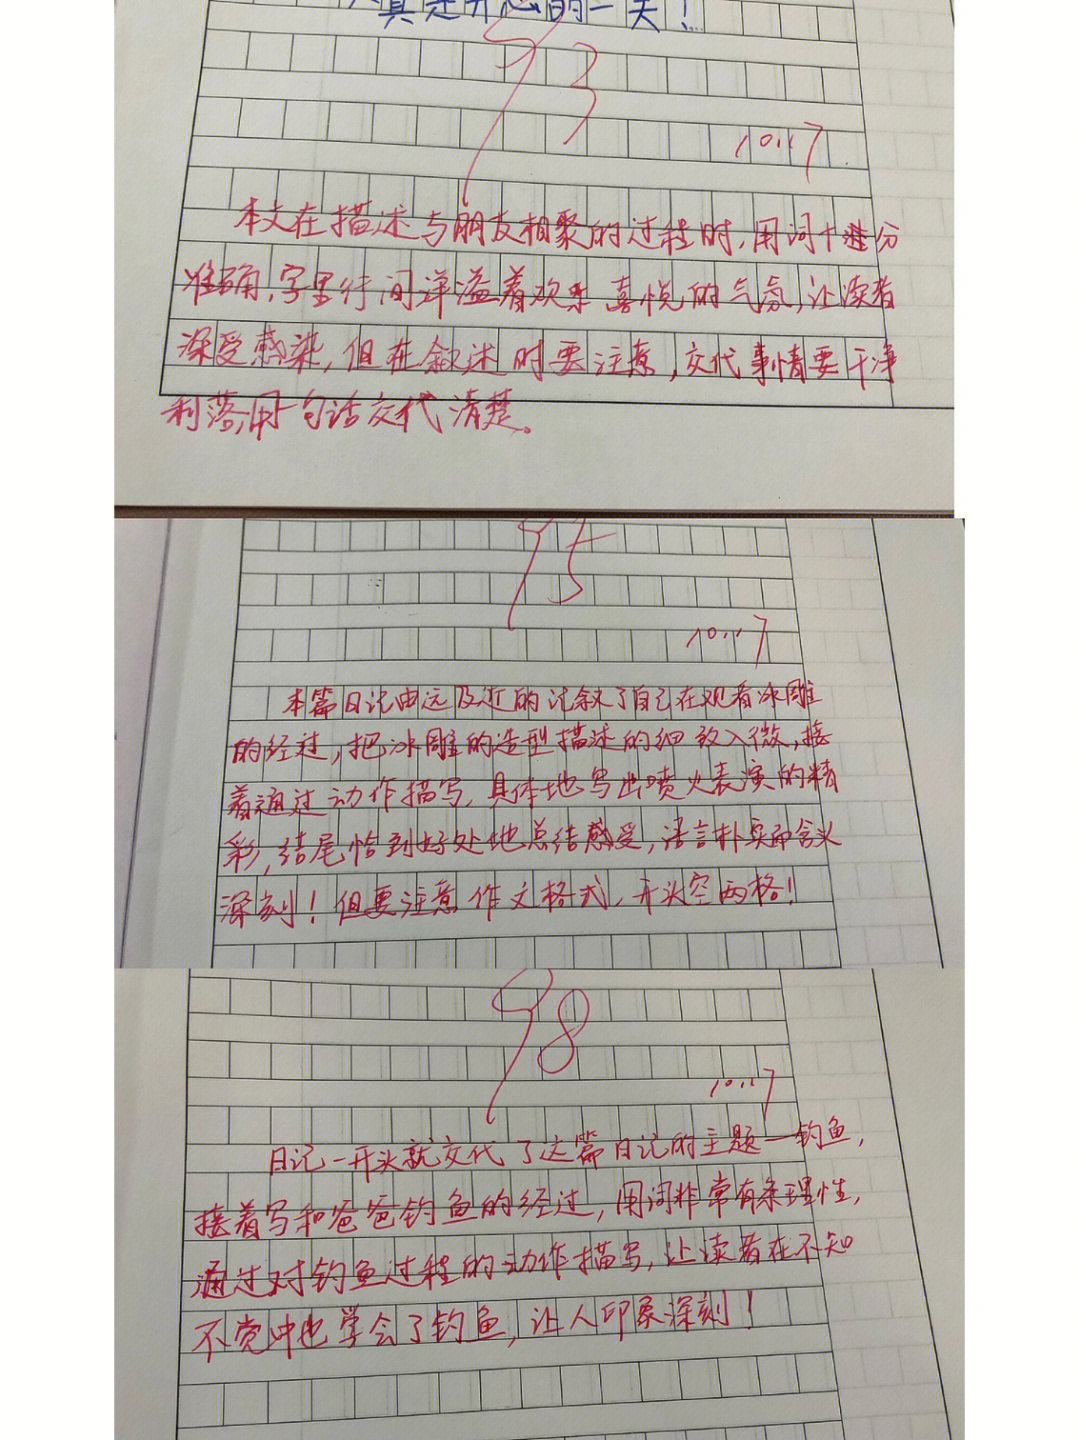 真是开心的一天！
93
10.17
本文在描述与朋友相聚的过程时，用词十分
准确，字里行间洋溢着欢乐喜悦的气氛，让读者
深受感染，但在叙述时要注意，交代事情要干净
利落，用一句话交代清楚。
95
10.17
本篇日记由远及近的记叙了自己在观看冰雕
的经过，把冰雕的造型描述的细致入微，接
着通过动作描写，具体地写出喷火表演的精
彩，结尾恰到好处地总结感受，语言朴实而含义
深刻！但要注意作文格式，开头空两格！
98
10.17
日记一开头就交代了这篇日记的主题一钓鱼，
接着写和爸爸钓鱼的经过，用词非常有条理性，
通过对钓鱼过程的动作描写，让读者在不知
不觉中也学会了钓鱼，让人印象深刻！